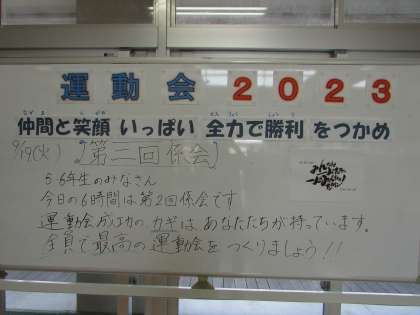 運動会 2023
仲間と笑顔 いっぱい 全力で勝利 をつかめ
9/19(火) 『第二回係会』
5・6年生のみなさん
今日の6時間は第2回係会です
運動会成功の カギは あなたたちが 持っています。
全員で最高の運動会を つくりましょう!!